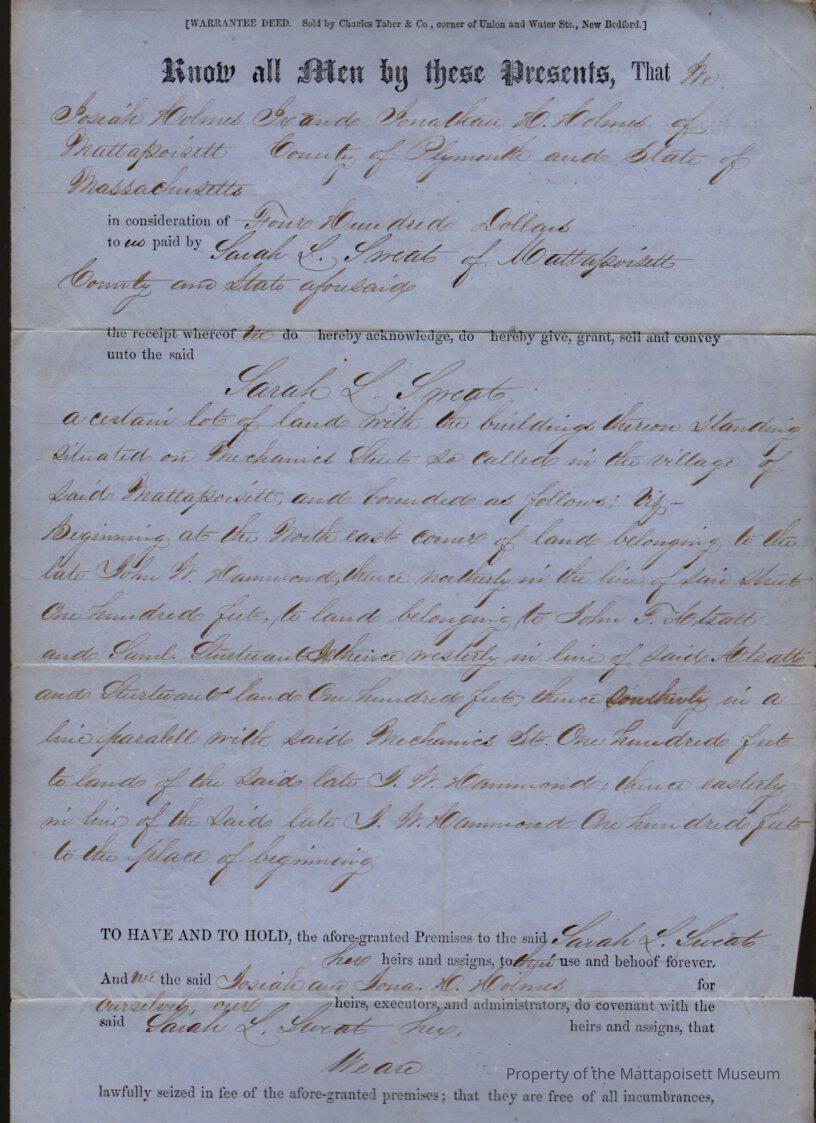 [WARRANTEE DEED. Sold by Charles Taber & Co., corner of Union and Water Sts., New Bedford.]
Know all Men by these Presents, That We
Josiah Holmes Jr and Jonathan H. Holmes of
Mattapoisett County of Plymouth and State of
Massachusetts
in consideration of Four Hundred Dollars
to us paid by Sarah L. Sweat of Mattapoisett
County and State aforesaid
the receipt whereof we do hereby acknowledge, do hereby give, grant, sell and convey
unto the said
Sarah L. Sweat
a certain lot of land with the buildings thereon standing
situated on Mechanics Street so called in the village of
said Mattapoisett, and bounded as follows: Viz-
Beginning at the North east corner of land belonging to the
late John W. Hammond, thence northerly in the line of said street
One hundred feet, to land belonging to John T. Atsatt
and Saml. Sturtevant thence westerly in line of said Atsatts
and Sturtevants land One hundred feet; thence southerly in a
line paralell with said Mechanics St. One hundred feet
to land of the said late J. W. Hammond; thence easterly
in line of the said late J. W. Hammond One hundred feet
to the place of beginning
TO HAVE AND TO HOLD, the afore-granted Premises to the said Sarah L. Sweat
her heirs and assigns, to their use and behoof forever.
And we the said Josiah and Jona. H. Holmes for
ourselves, our heirs, executors, and administrators, do covenant with the
said Sarah L. Sweat her, heirs and assigns, that
We are
lawfully seized in fee of the afore-granted premises; that they are free of all incumbrances,
Property of the Mattapoisett Museum